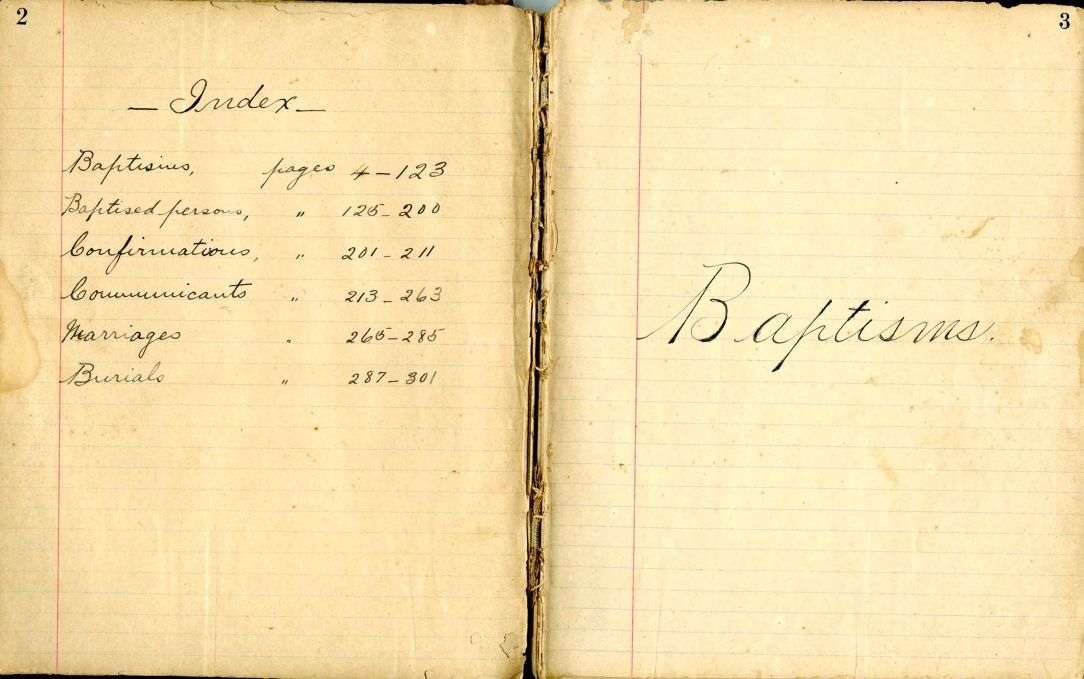 2
— Index —
Baptisms, pages 4 – 123
Baptised persons, " 125 – 200
Confirmations, " 201 – 211
Communicants " 213 – 263
Marriages " 265 – 285
Burials " 287 – 301
3
Baptisms.